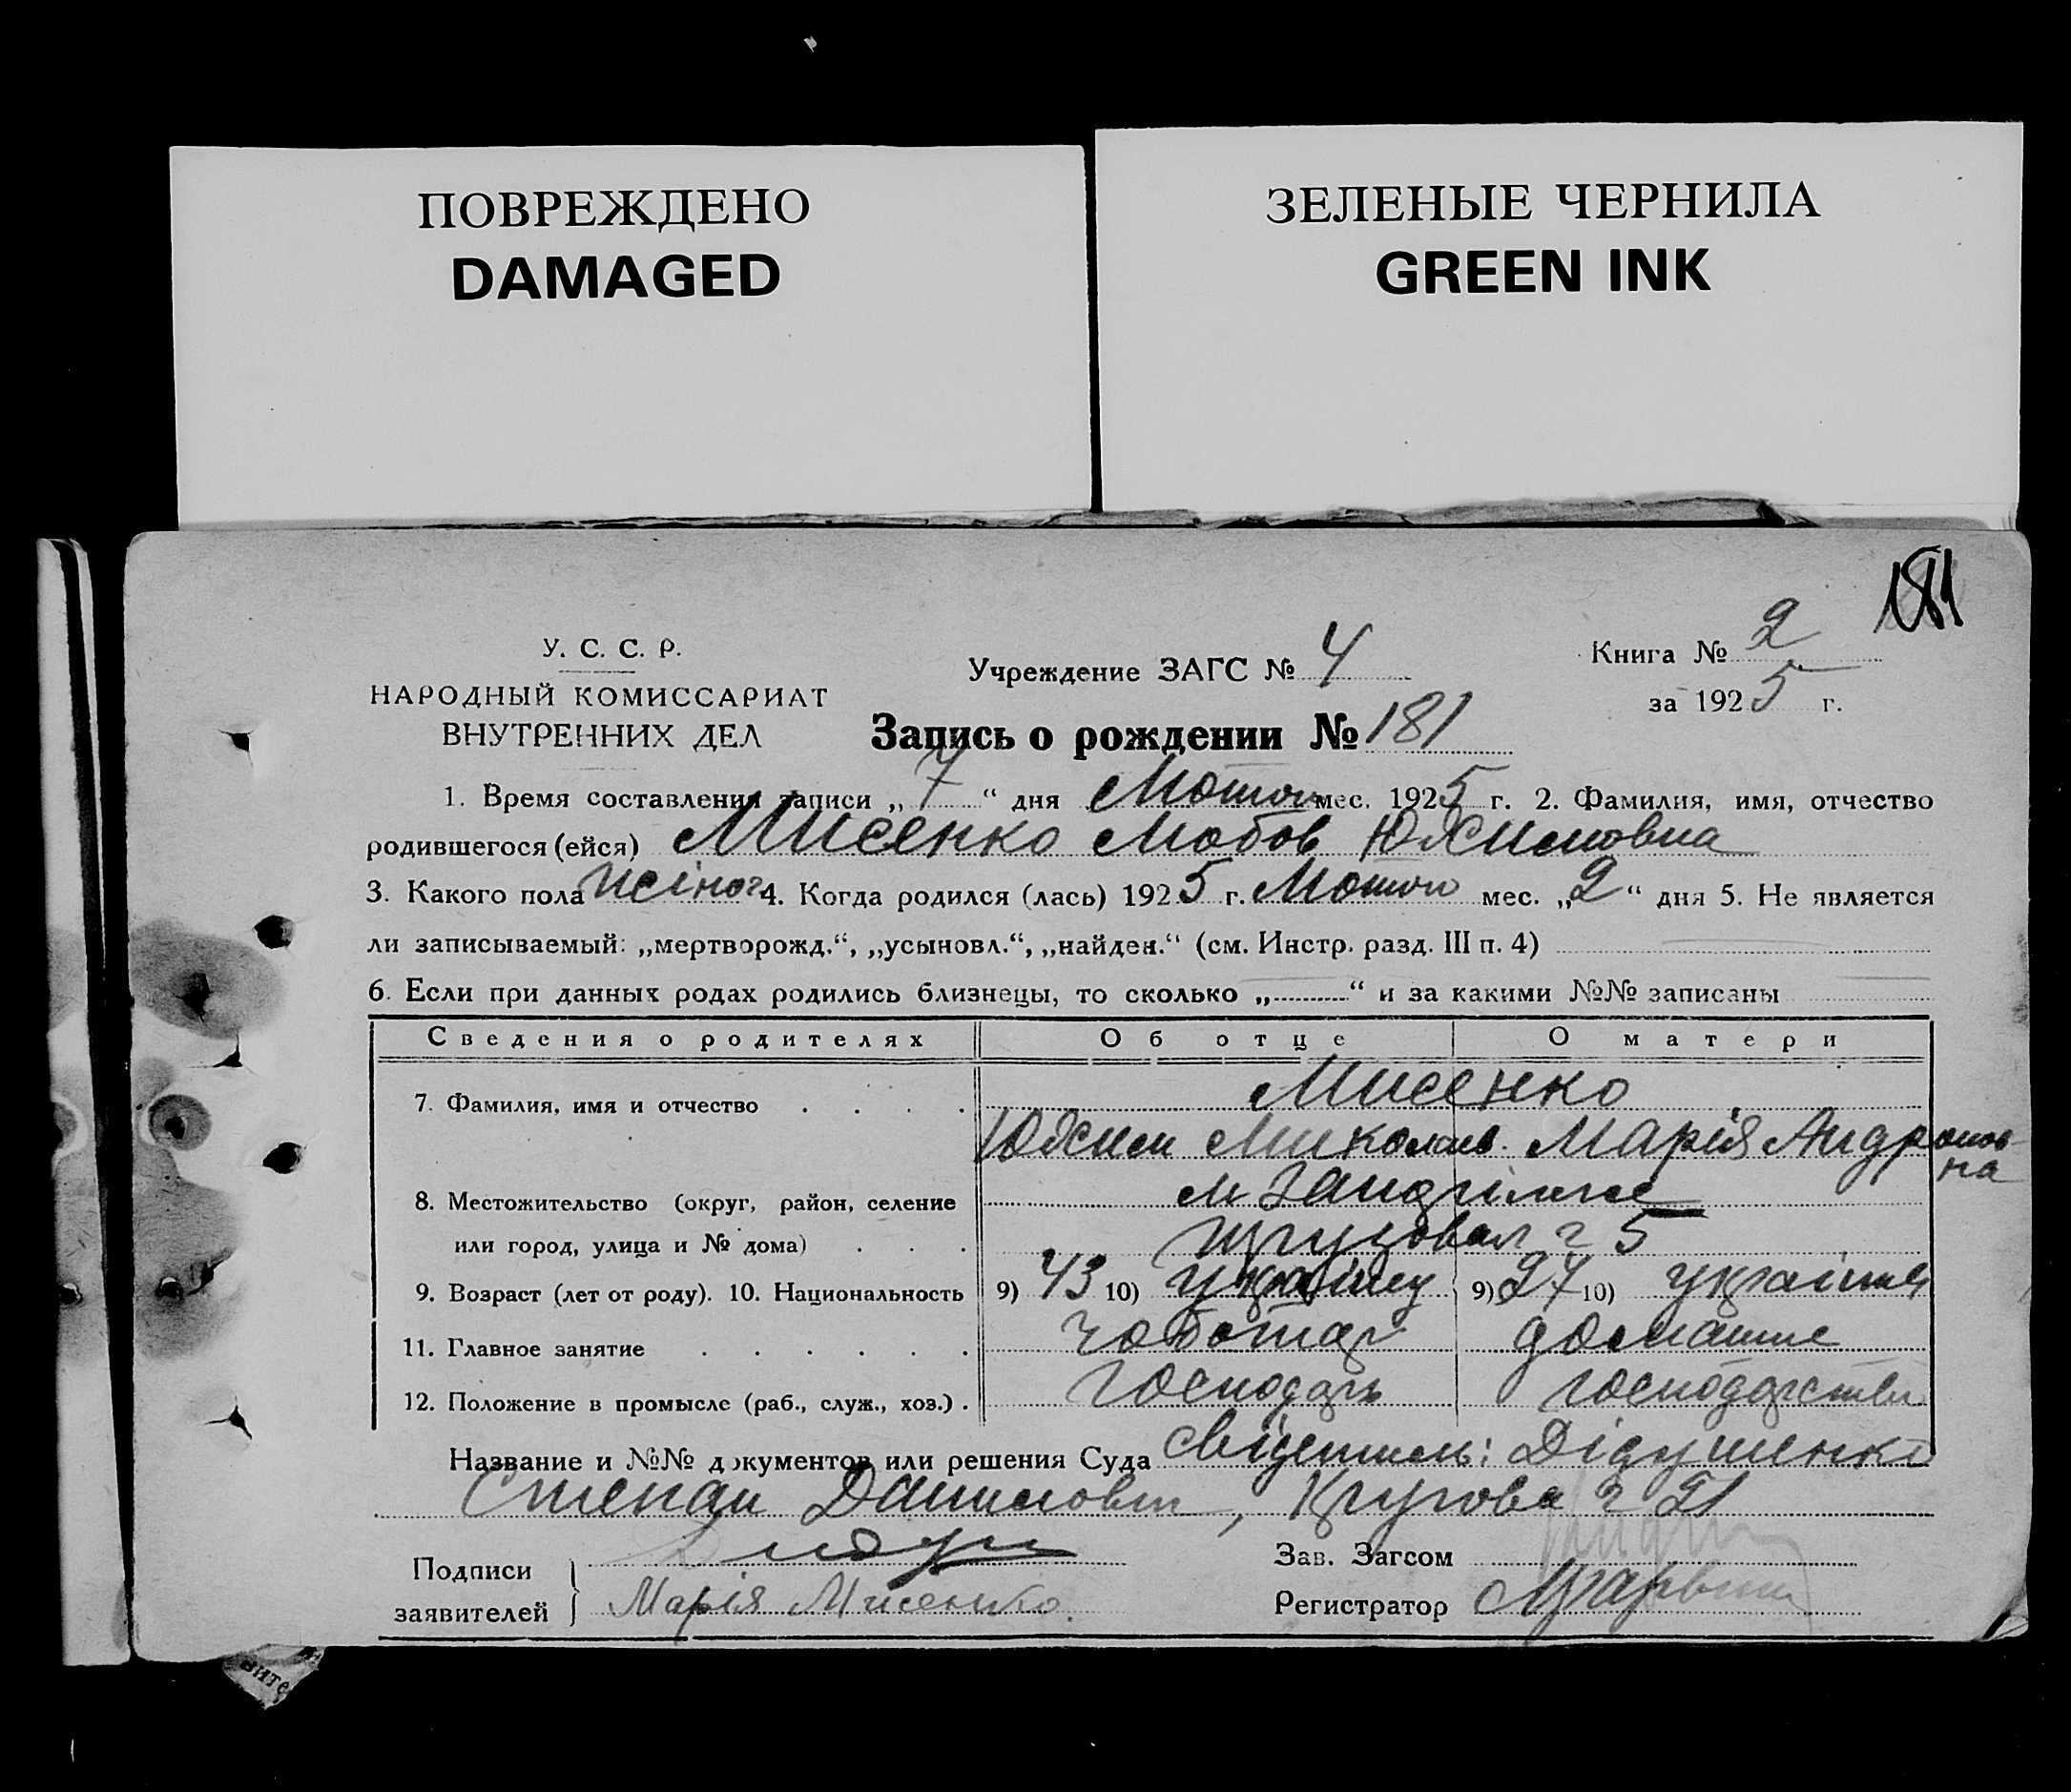 ПОВРЕЖДЕНО
DAMAGED
ЗЕЛЕНЫЕ ЧЕРНИЛА
GREEN INK
181
У. С. С. Р.
НАРОДНЫЙ КОМИССАРИАТ
ВНУТРЕННИХ ДЕЛ
Учреждение ЗАГС № 4
Книга № 2
за 1925 г.
Запись о рождении № 181
1. Время составления записи „ 7 “ дня Лютого мес. 1925 г. 2. Фамилия, имя, отчество
родившегося (ейся) Мисенко Любов Юхимовна
3. Какого пола жіноч 4. Когда родился (лась) 1925 г. Лютого мес. „2“ дня 5. Не является
ли записываемый: „мертворожд.“, „усыновл.“, „найден.“ (см. Инстр. разд. III п. 4)
6. Если при данных родах родились близнецы, то сколько „ “ и за какими №№ записаны
Сведения о родителях Об отце О матери
7. Фамилия, имя и отчество Мисенко
Юхим Миколаев. Марія Андронов-
на
8. Местожительство (округ, район, селение
или город, улица и № дома) 5
9. Возраст (лет от роду). 10. Национальность 9) 43 10) 9) 27 10) україн
11. Главное занятие чоботар домашнє
12. Положение в промысле (раб., служ., хоз.) господарь господарство
Название и №№ документов или решения Суда Свідетель: Дідушенко
Степан Данилович, Кругова 21
Подписи
заявителей Марія Мисенко.
Зав. Загсом
Регистратор
вите